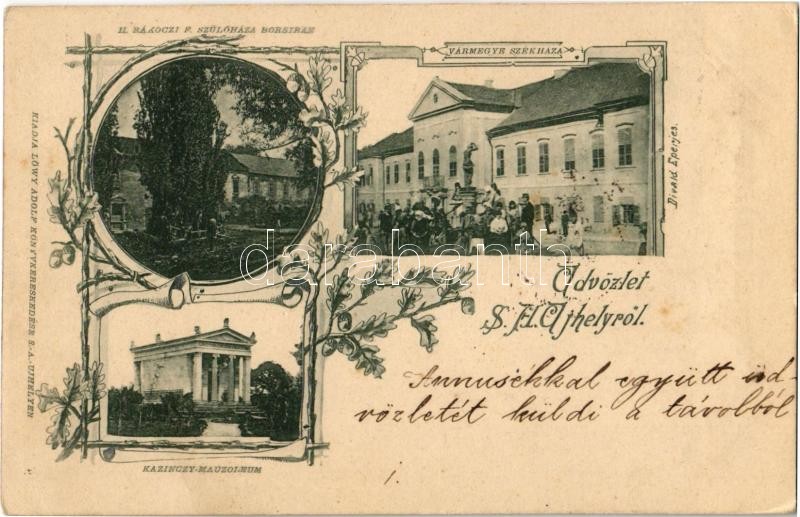 II. RÁKOCZI F. SZÜLŐHÁZA BORSIBAN
VÁRMEGYE SZÉKHÁZA
KIADJA LÖWY ADOLF KÖNYVKERESKEDÉSE S.-A.-UJHELYEN
Divald Eperjes.
darabanth
Üdvözlet
S. A. Ujhelyről.
Annusékkal együtt üd-
vözletét küldi a távolból
KAZINCZY-MAUZOLEUM
1.